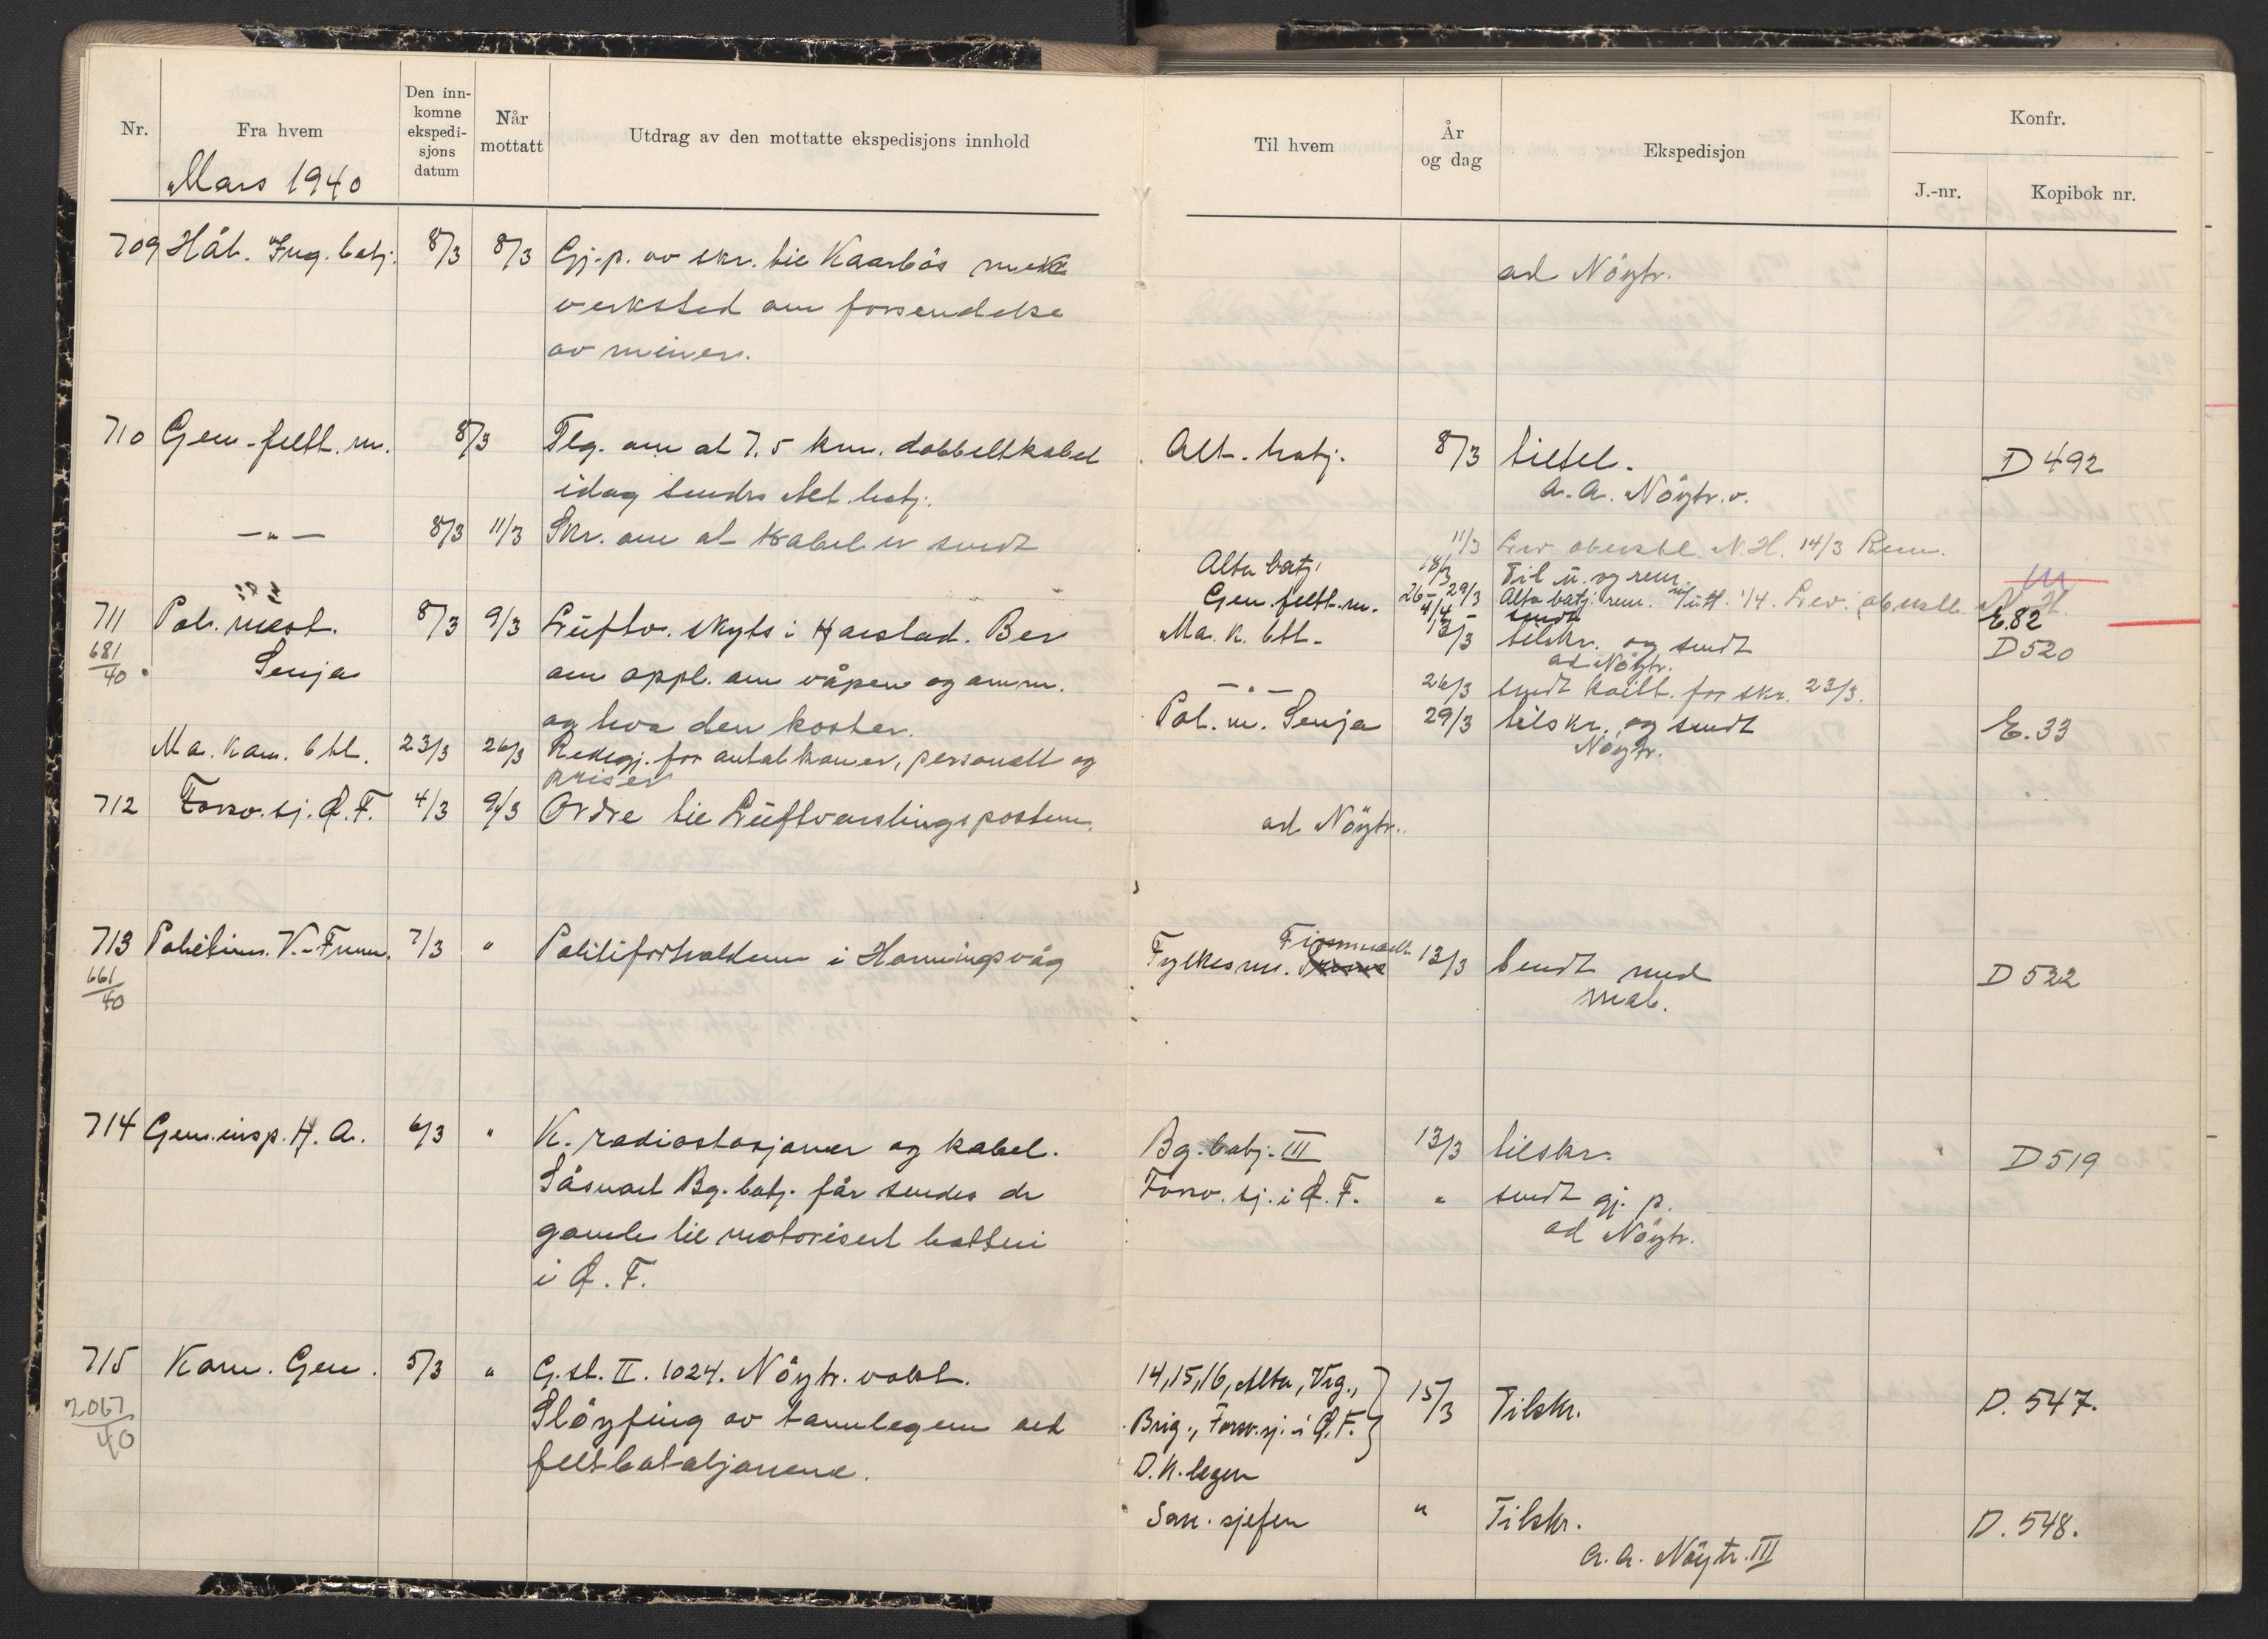 Nr.
Fra hvem
Den inn-
komne
ekspedi-
sjons
datum
Når
mottatt
Utdrag av den mottatte ekspedisjons innhold
Mars 1940
709 Hål. Ing. batj. 8/3 8/3 Gj.p. av skr. til Kaarbös mek
verksted om forsendelse
av miner.
710 Gen.feltt.m. 8/3 Tlg. om at 7.5 km. dobbeltkabel
idag sendes Alt. batj.
—"— 8/3 11/3 Skr. om at kabel er sendt
711 Pol. mest. 8/3 9/3 Luftv. skyts i Harstad. Ber
681/40 Senja om oppl. om våpen og amm.
og hva den koster.
Ma. Kan. btl. 23/3 26/3 Redegj. for antal kaner, personell og
priser
712 Forsv.sj. Ø.F. 4/3 9/3 Ordre til Luftvarslingsposten.
713 Politim. V.-Finnm. 7/3 " Politiforholdene i Honningsvåg
661/40
714 Gen.insp. H.A. 6/3 " K. radiostasjoner og kabel.
Såsnart Bg. batj. får sendes de
gamle til motorisert batteri
i Ø.F.
715 Kom. Gen. 5/3 " G.st. II. 1024. Nöytr.vakt.
2067/40 Slöyfing av tannlegen ved
feltbataljonene.
Til hvem
År
og dag
Ekspedisjon
Konfr.
J.-nr.
Kopibok nr.
ad Nöytr.
Alt. batj. 8/3 tiltel. D 492
a.a. Nöytr.v.
11/3 Lev oberstl. N.H. 14/3 Rem.
Alta batj. 18/3 Til u. og rem.
Gen. feltt.m. 26-29/3 Alta batj. rem. 1/4. Lev. oberstl. N.H.
4/4 - sendt E.82
Ma. K. btl. 13/3 tilskr. og sendt D 520
ad Nöytr.
—"— 26/3 sendt kvitt. for skr. 23/3.
Pol. m. Senja 29/3 tilskr. og sendt E. 33
Nöytr.
ad Nöytr.
Finnmark
Fylkesm. 13/3 Sendt med D 522
mab.
Bg. batj. III 13/3 tilskr. D 519
Forsv.sj. i Ø.F. " sendt gj. p.
ad Nöytr.
14, 15, 16, Alta, Vrg.,
Brig., Forsv.sj. i Ø.F. 15/3 Tilskr. D. 547.
D.K. legen
San. sjefen " Tilskr. D. 548.
a.a. Nöytr. III